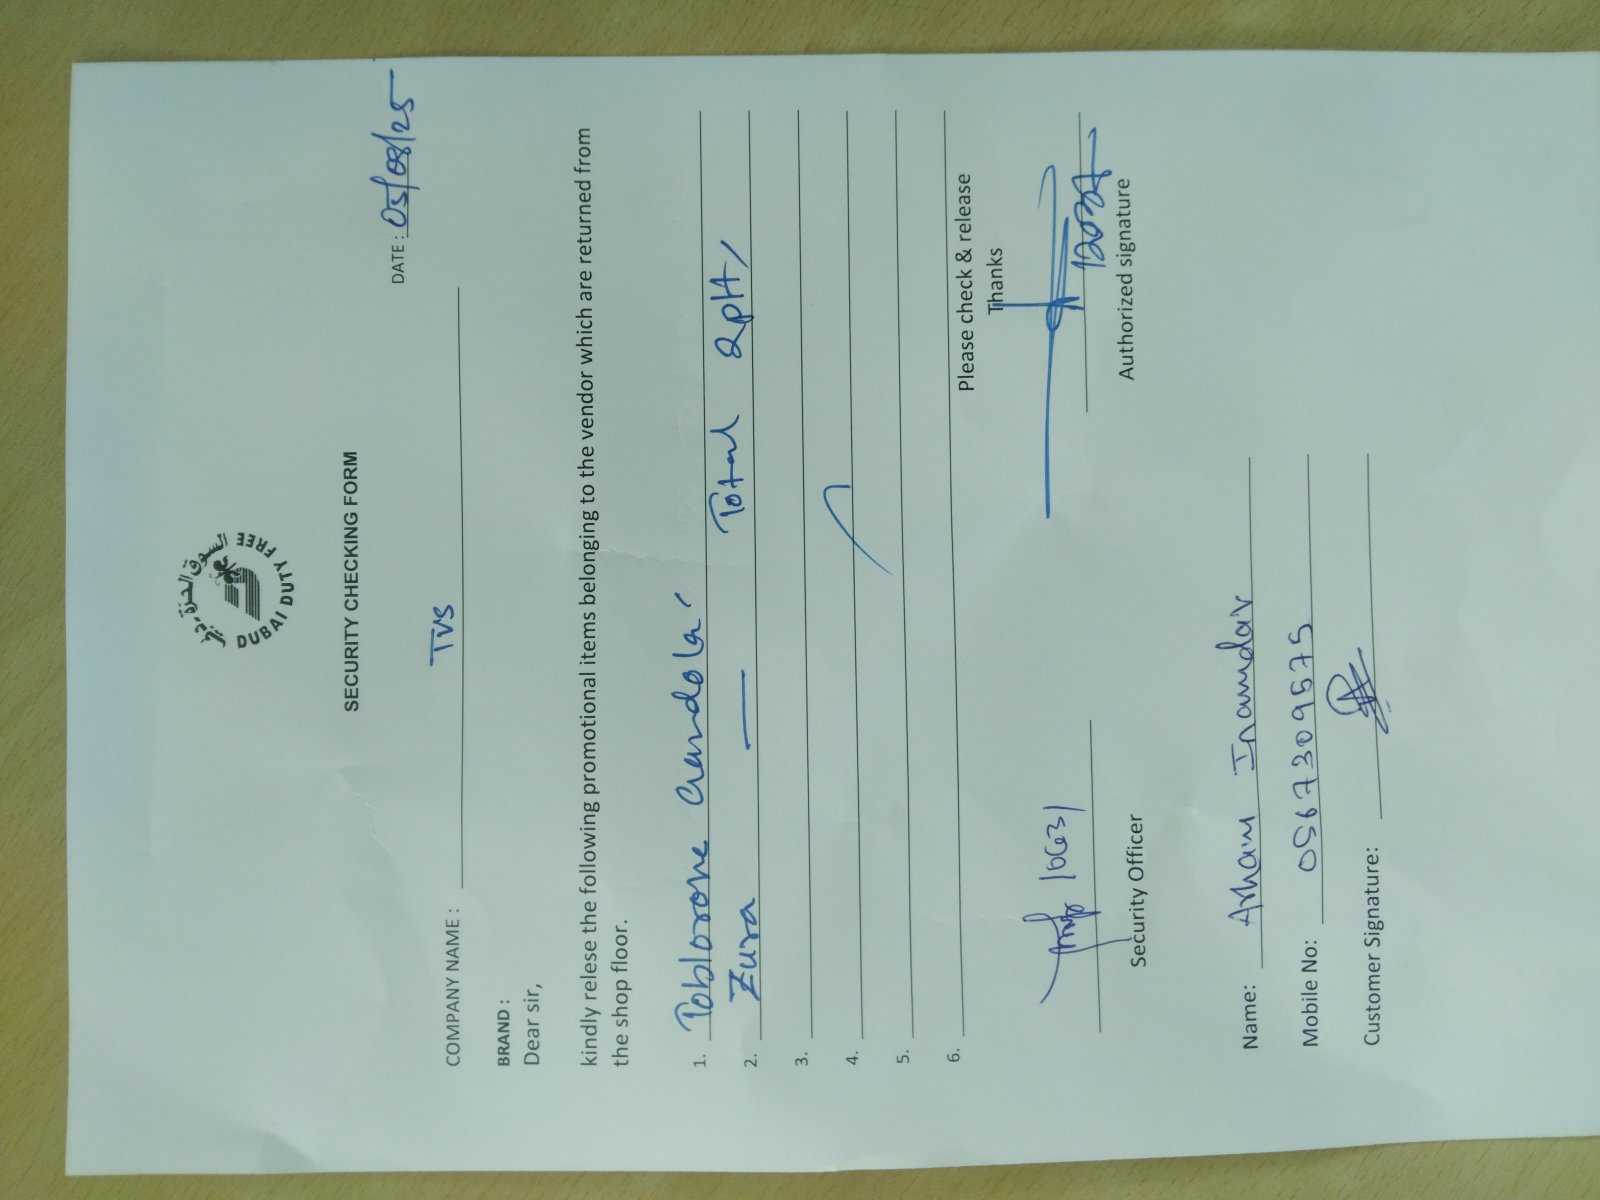 السوق الحرة دبي
DUBAI DUTY FREE
SECURITY CHECKING FORM
DATE : 05/08/25
COMPANY NAME : TVS
BRAND :
Dear sir,
kindly relese the following promotional items belonging to the vendor which are returned from
the shop floor.
1. Toblorone Gandola
2. Zura — Total
3.
4.
5.
6.
Please check & release
Thanks
10631
Security Officer
Authorized signature
Name: Arham Inamdar
Mobile No: 0567309575
Customer Signature: